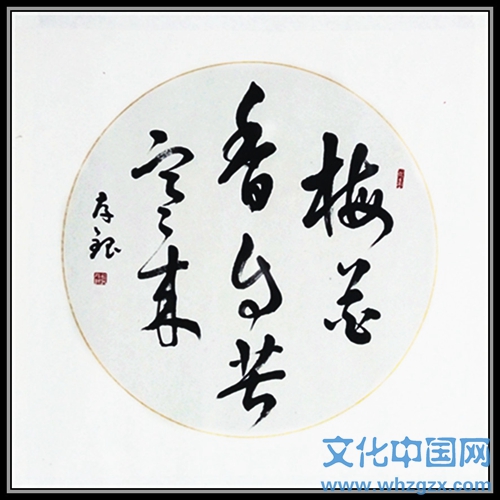 梅花
香自苦
寒来
存银
文化中国网
www.whzgzx.com